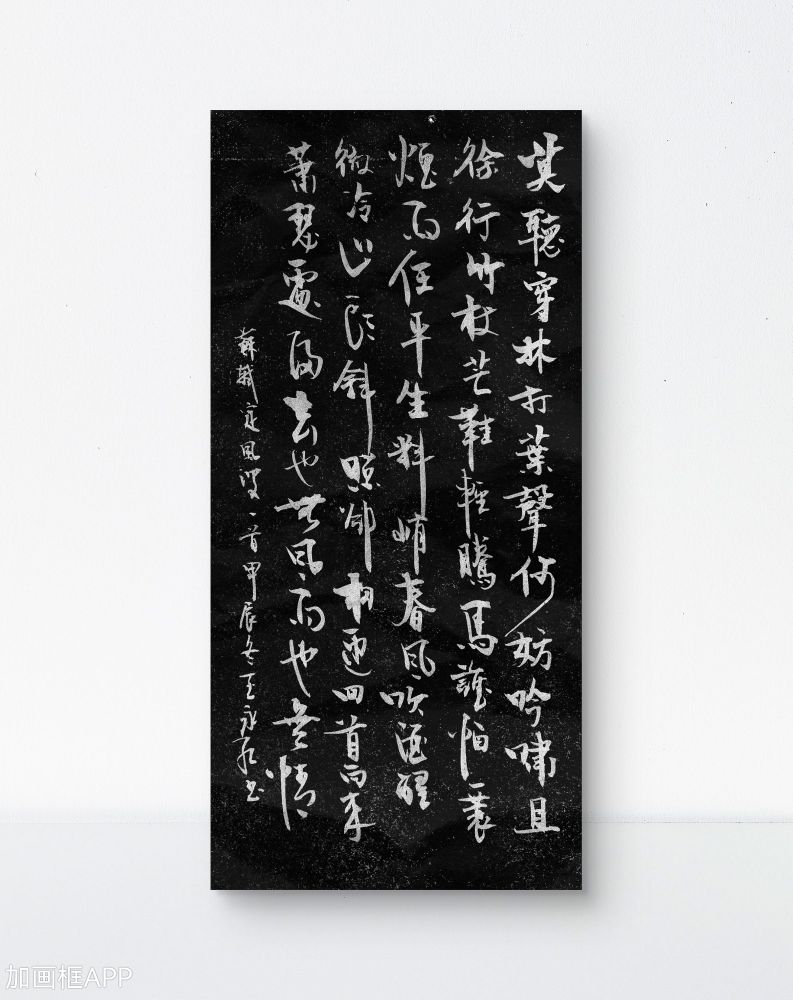 莫聽穿林打葉聲何妨吟嘯且
徐行竹杖芒鞋輕勝馬誰怕一蓑
煙雨任平生料峭春風吹酒醒
微冷山頭斜照卻相迎回首向來
蕭瑟處歸去也無風雨也無情
蘇軾定風波一首甲辰冬永书
加画框APP